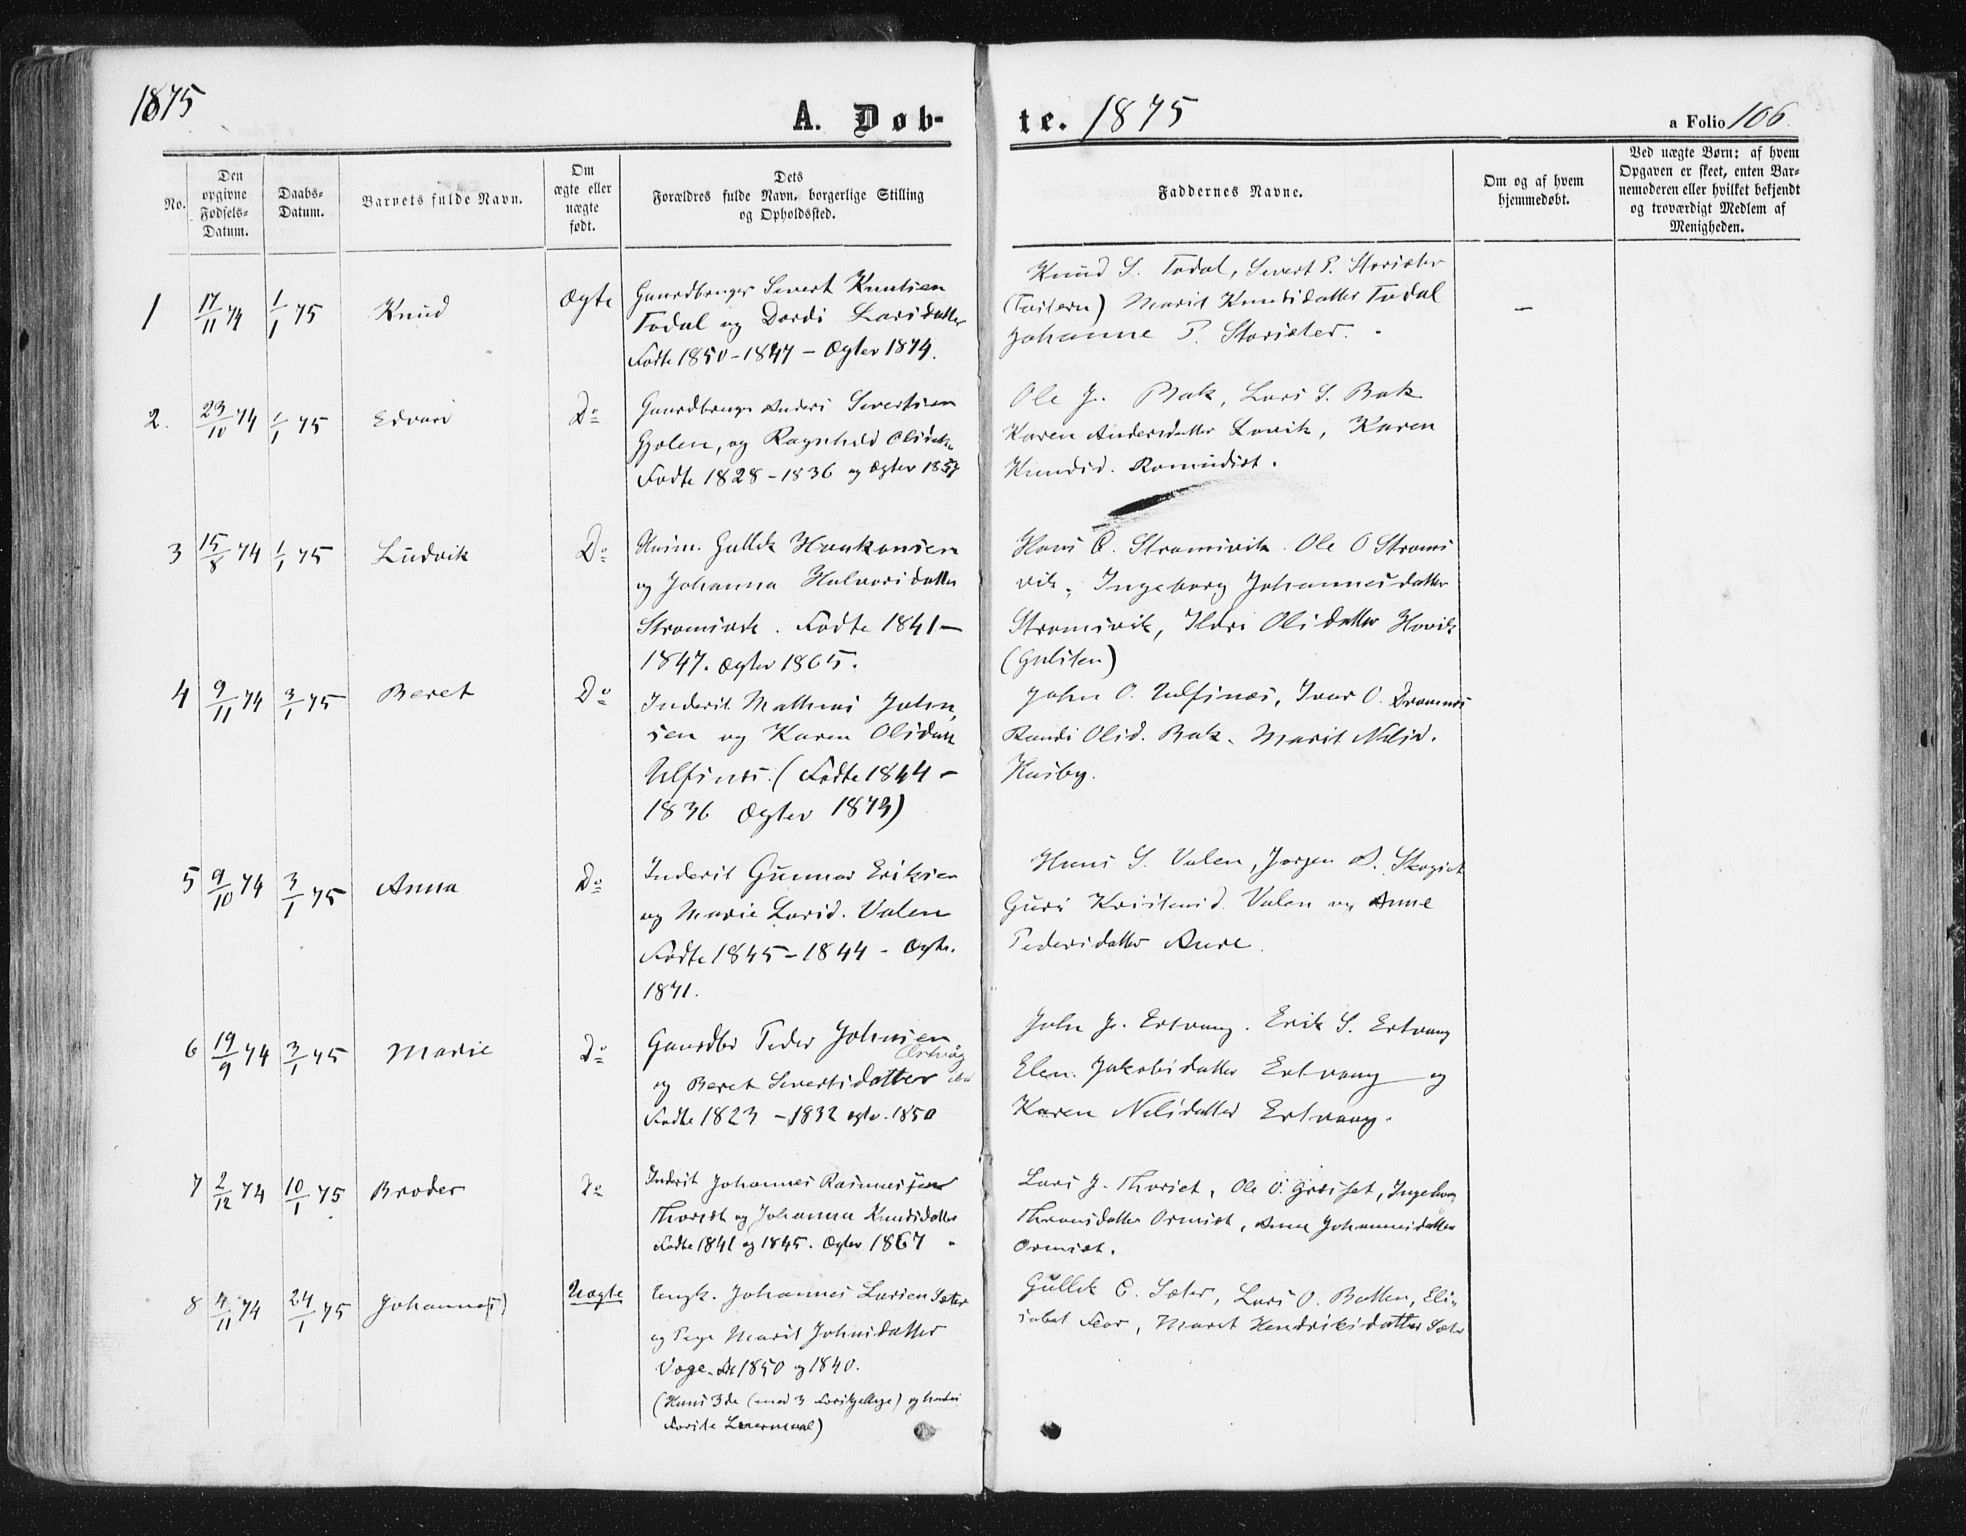 1875
A. Døb-
te. 1875
a Folio 106.
No.
Den
opgivne
Fødsels-
Datum.
Daabs-
Datum.
Barnets fulde Navn.
Om
ægte eller
uægte
født.
Dets
Forældres fulde Navn, borgerlige Stilling
og Opholdssted.
Faddernes Navne.
Om og af hvem
hjemmedøbt.
Ved uægte Børn: af hvem
Opgaven er skeet, enten Bar-
nemoderen eller hvilket bekjendt
og troværdigt Medlem af
Menigheden.
1 17/11 74 1/1 75 Knud Ægte
Gaardbruger Sivert Knutsen
Todal og Dordi Larsdatter
Fødte 1850 - 1847 - Ægtev 1874.
Knud S. Todal, Sivert P. Storiseter
Marit Knudsdatter Todal
Johanne P. Storiseter.
-
2. 23/10 74 1/1 75 Edvard Do
Gaardbruger Anders Sivertsen
Gjølen, og Ragnhild Olsdatter
Fødte 1828 - 1836 og Ægtev 1857
Ole J. Bak, Lars S. Bak
Karen Andersdatter Lovik, Karen
Knudsd. Romundset.
3 15/8 74 1/1 75 Ludvik Do
Husm. Gullik Haakonsen
og Johanna Halvorsdatter
Strømsvik. Fødte 1841 -
1847. Ægtev 1865.
Hans O. Strømsvik. Ole O Strøms
vik, Ingeborg Johannesdatter
Strømsvik, Olsdatter Hovik
(Gulsten)
4 9/11 74 3/1 75 Beret Do
Inderst Mathias John,
sen og Karen Olsdatt
Ulfsnes. (Fødte 1844 -
1836 Ægtev 1873)
John O. Ulfsnes, Ivar O. Dromnes
Randi Olsd. Bak. Marit Nilsd.
Husby.
5 9/10 74 3/1 75 Anna Do
Inderst Gunnar Eriksen
og Marie Larsd. Valen
Fødte 1845 - 1844 - Ægte.
1871.
Hans S. Valen, Jørgen Skogset
Guri Kristensd. Valen og Anne
Pedersdatter Aure.
6 19/9 74 3/1 75 Marie Do
Gaardbr Peder Johnsen
Ertvåg
og Beret Sivertsdatter
Fødte 1823 - 1832 ægtv. 1850
John J. Ertvaag. Erik S. Ertvaag
Elen. Jakobsdatter Ertvaag og
Karen Nilsdatter Ertvaag.
7 2/12 74 10/1 75 Broder Do
Inderst Johannes Rasmussen
Thorset og Johanna Knudsdatter
Fødte 1841 og 1845. Ægtev 1867
Lars J. Thorset, Ole O. Grøsset, Ingeborg
Thronsdatter Ormset, Anne Johannesdatter
Ormset.
8 4/11 74 24/1 75 Johannes Uægte
Ungk. Johannes Larsen Sæter
og Pige Marit Johnsdatter
Vaage. Fdt 1850 og 1840.
(Hans 3de (med 3 Forskjellige) og hendes
Første Leiermaal)
Gullik E. Sæter, Lars O. Botten, Eli-
sabet Foor, Maret Hendriksdatter Sæter